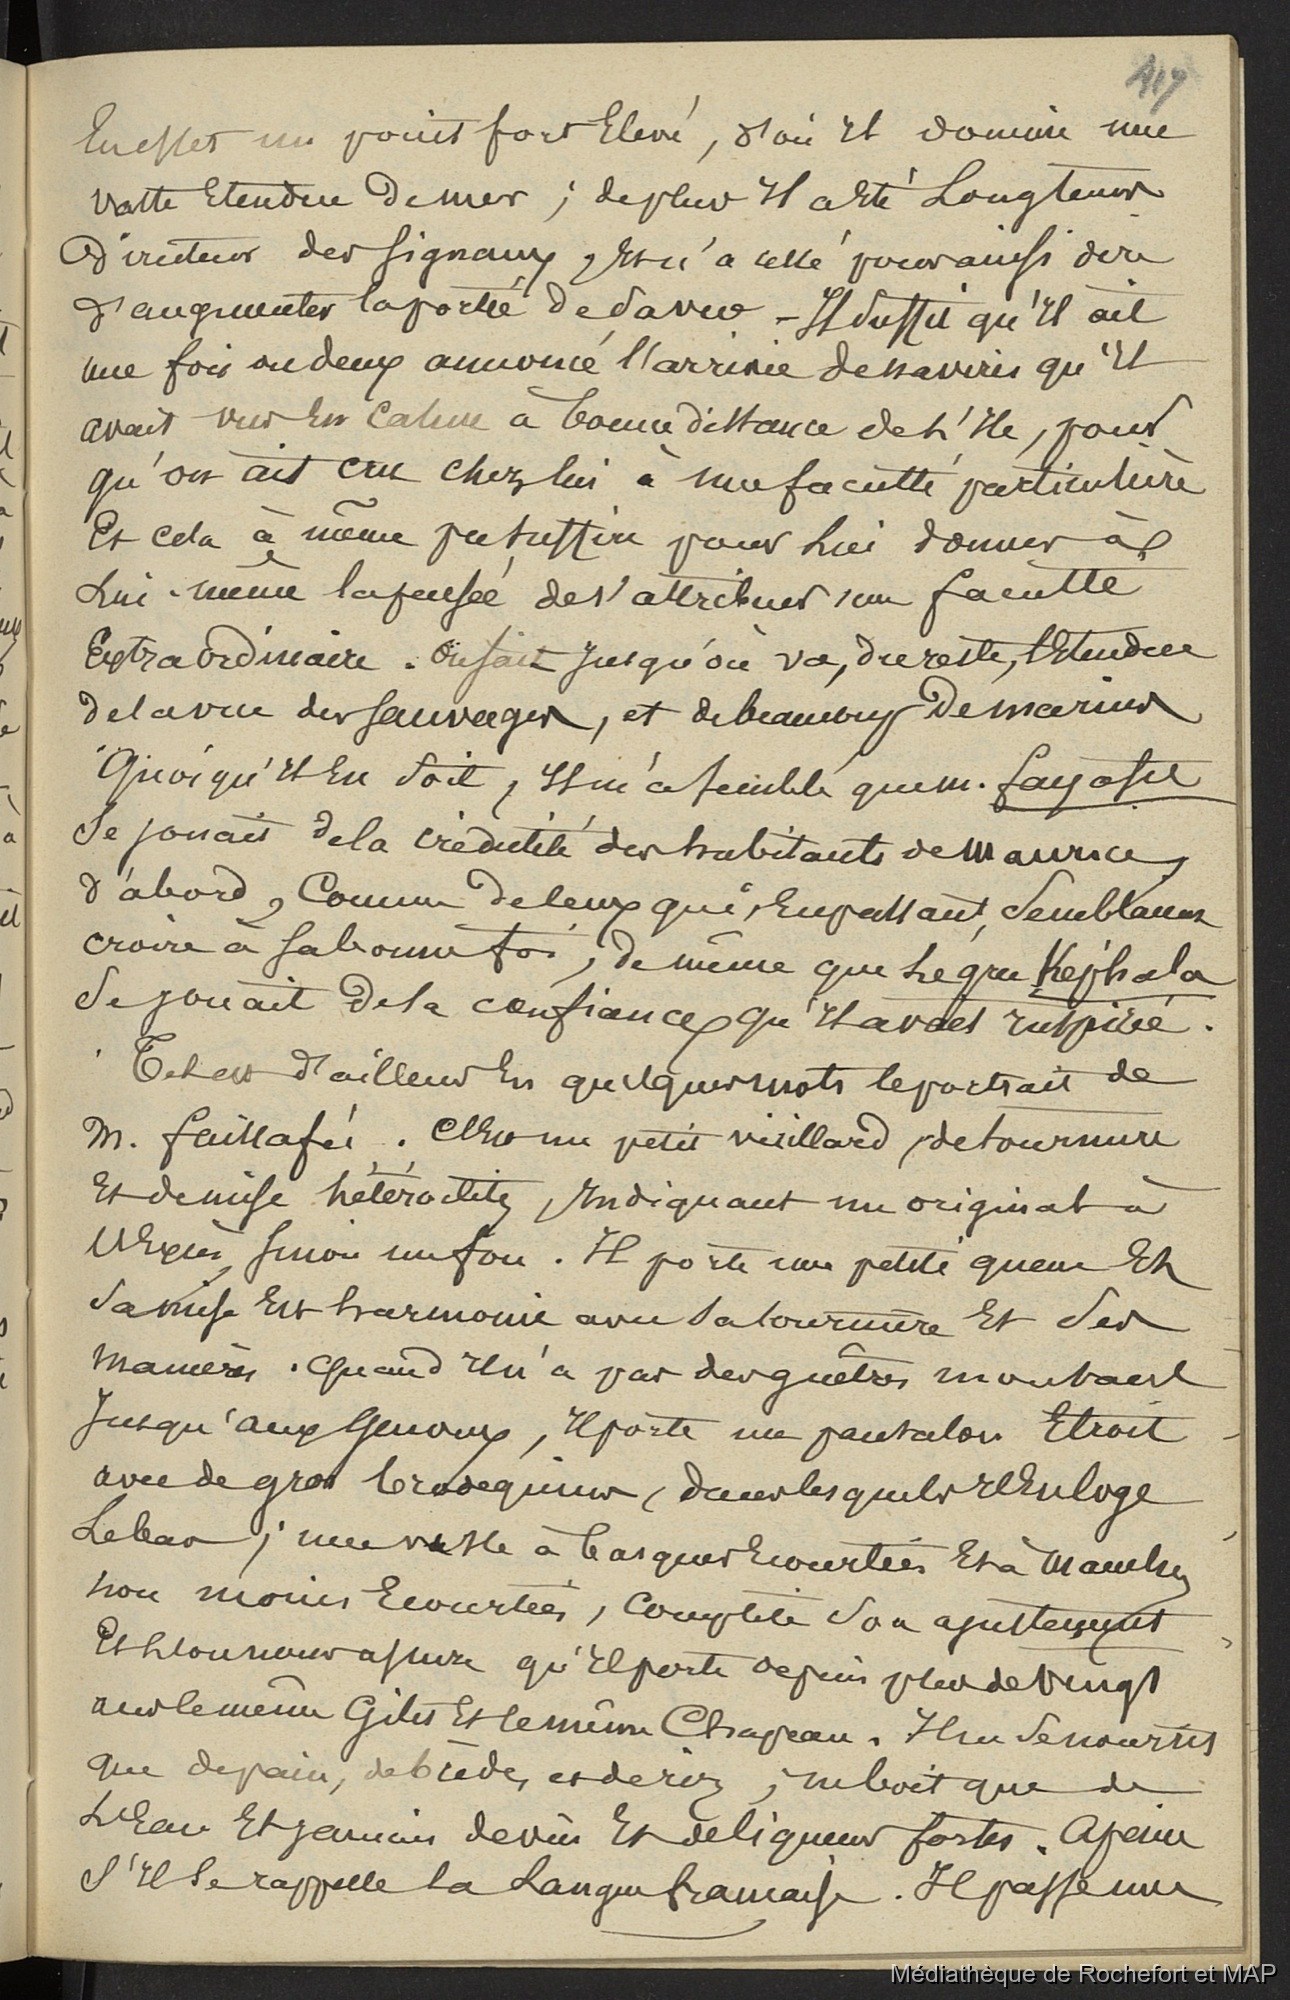 417
En effet un point fort Elevé, d'où Il domine une
vaste Etendue De mer ; de plus Il a Eté Longtems
Directeur des signaux, Et n'a cessé pour ainsi dire
d'augmenter la portée De sa vue - Il suffit qu'Il ait
une fois ou deux annoncé l'arrivée de navires qu'Il
avait vus En calme à bonne distance de L'Ile, pour
qu'on ait cru chez lui à une faculté particulière
Et cela à même pu suffire pour Lui donner à
Lui-même la pensée de s'attribuer une faculté
Extraordinaire. On sait Jusqu'où va, du reste, l'Etendue
de la vue des sauvages, et de beaucoup De marins
Quoiqu'Il En soit, Il m'a semblé que m. fayafé
Se jouait de la crédulité des habitants de Maurice,
d'abord, Comme De ceux qui, En passant, Semblaient
croire à sa bonne foi, de même que Le grec Képhala
Se jouait De la confiance qu'Il avait Inspirée.
Tel est d'ailleurs En quelques mots le portrait de
M. faillafé. C'Est un petit vieillard, de tournure
Et de mise hétéroclite, Indiquant un original à
l'Excès, sinon un fou. Il porte une petite queue Et
Sa mise Est harmonie avec Sa tournure Et Ses
Manières. Quand Il n'a pas des guêtres montant
Jusqu'aux Genoux, Il porte un pantalon Etroit
avec de gros brodequins, dans lesquels Il En loge
Le bas ; une veste à basques Ecourtées Et à Manches
non moins Ecourtées, complète son ajustement
Et L'on nous assure qu'Il porte depuis plus de vingt
ans le même Gilet Et le même Chapeau. Il ne Se nourrit
que de pain, de brèdes, et de riz ; ne boit que de
L'Eau Et jamais de vin Et de liqueurs fortes. A peine
S'Il Se rappelle La Langue française. Il passe une
Médiathèque de Rochefort et MAP